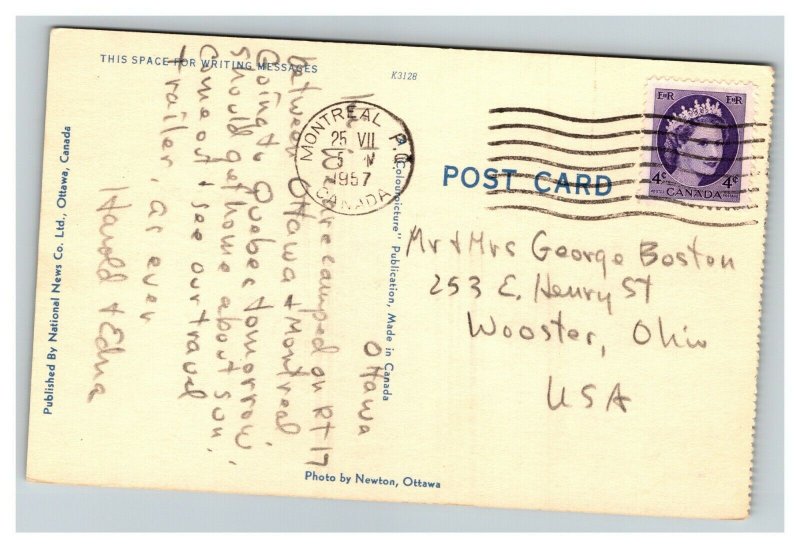 THIS SPACE FOR WRITING MESSAGES
K3128
Published By National News Co. Ltd., Ottawa, Canada
"Colourpicture" Publication, Made in Canada
Photo by Newton, Ottawa
POST CARD
MONTREAL P.Q.
25 VII
1957
CANADA
E II R
E II R
4¢
CANADA
4¢
Ottawa
camped on Rt 17
between Ottawa + Montreal
Going to Quebec tomorrow
should get home about sun.
Come out + see our travel
trailer, as ever
Harold + Edna
Mr + Mrs George Boston
253 E. Henry St
Wooster, Ohio
USA